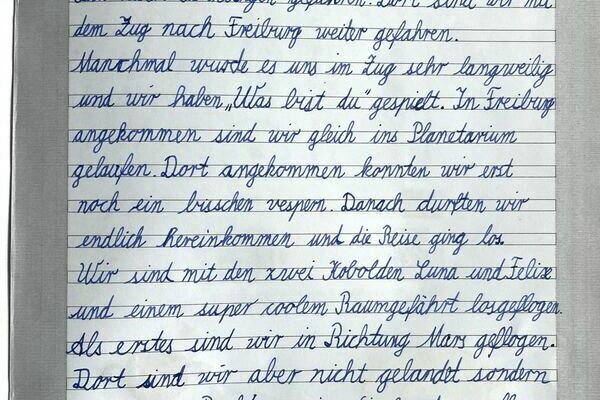 gefahren. Dort sind wir mit
dem Zug nach Freiburg weiter gefahren.
Manchmal wurde es uns im Zug sehr langweilig
und wir haben „Was bist du“ gespielt. In Freiburg
angekommen sind wir gleich ins Planetarium
gelaufen. Dort angekommen konnten wir erst
noch ein bisschen vespern. Danach durften wir
endlich hereinkommen und die Reise ging los.
Wir sind mit den zwei Kobolden Luna und Felix
und einem super coolem Raumgefährt losgeflogen.
Als erstes sind wir in Richtung Mars geflogen.
Dort sind wir aber nicht gelandet sondern